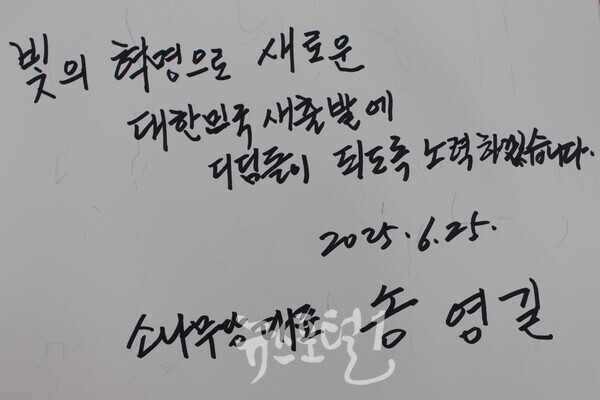 빛의 혁명으로 새로운
대한민국 새출발에
디딤돌이 되도록 노력하겠습니다.
2025. 6. 25.
소나무당 대표 송영길
뉴스포털1